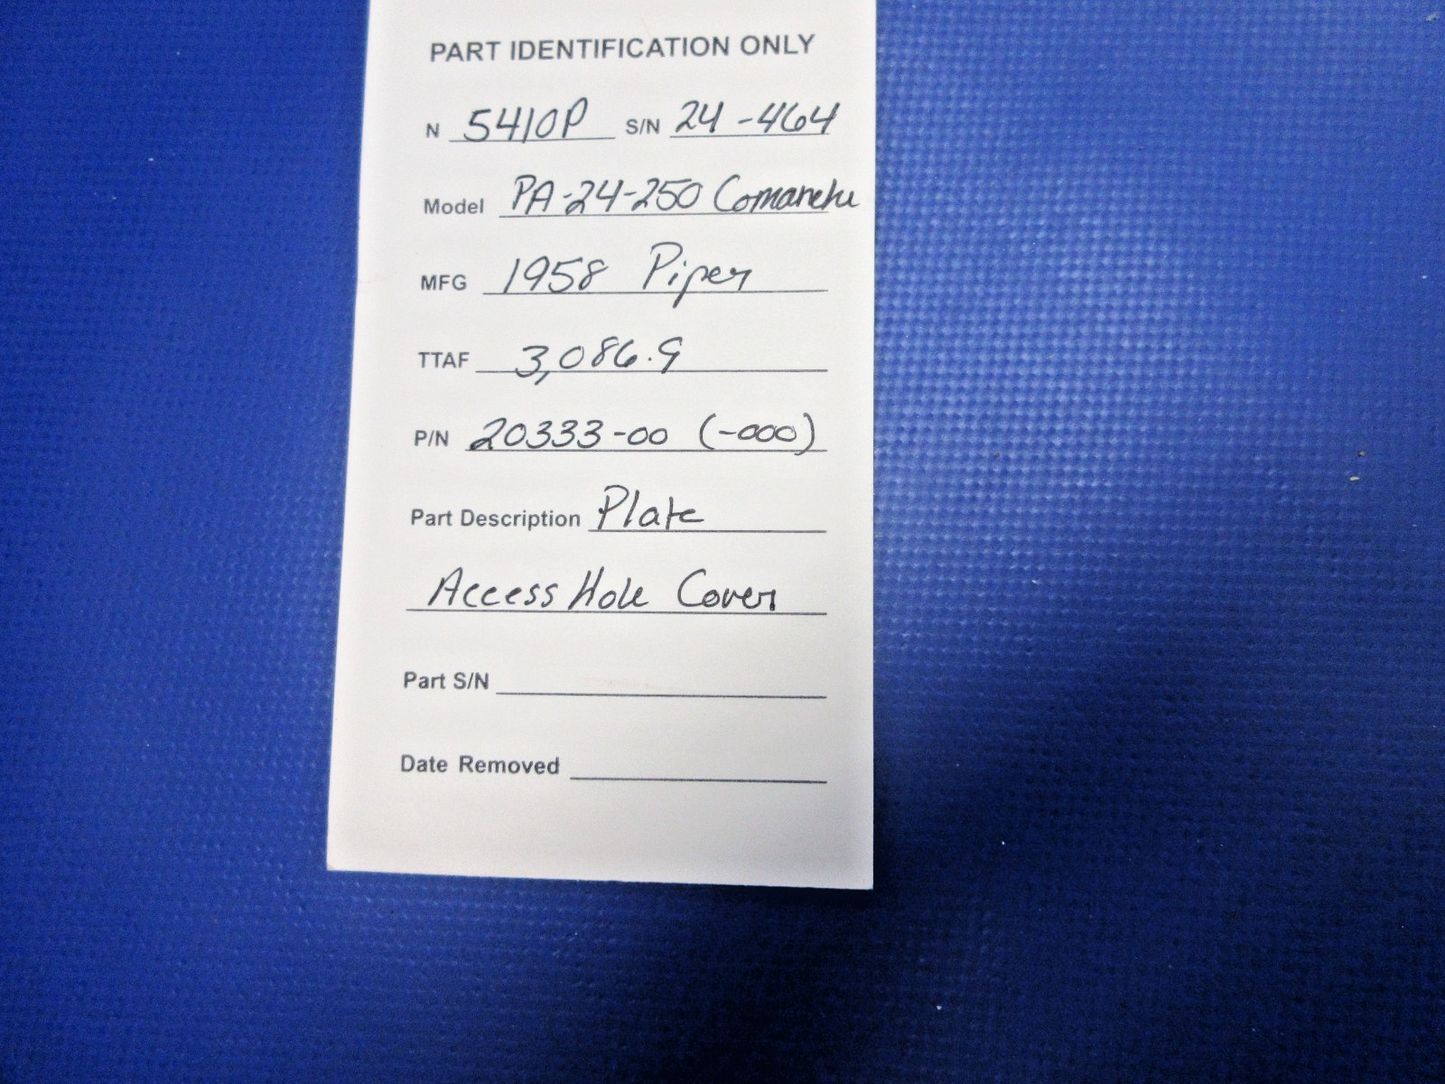 PART IDENTIFICATION ONLY
N 5410P S/N 24-464
Model PA-24-250 Comanche
MFG 1958 Piper
TTAF 3,086.9
P/N 20333-00 (-000)
Part Description Plate
Access Hole Cover
Part S/N
Date Removed